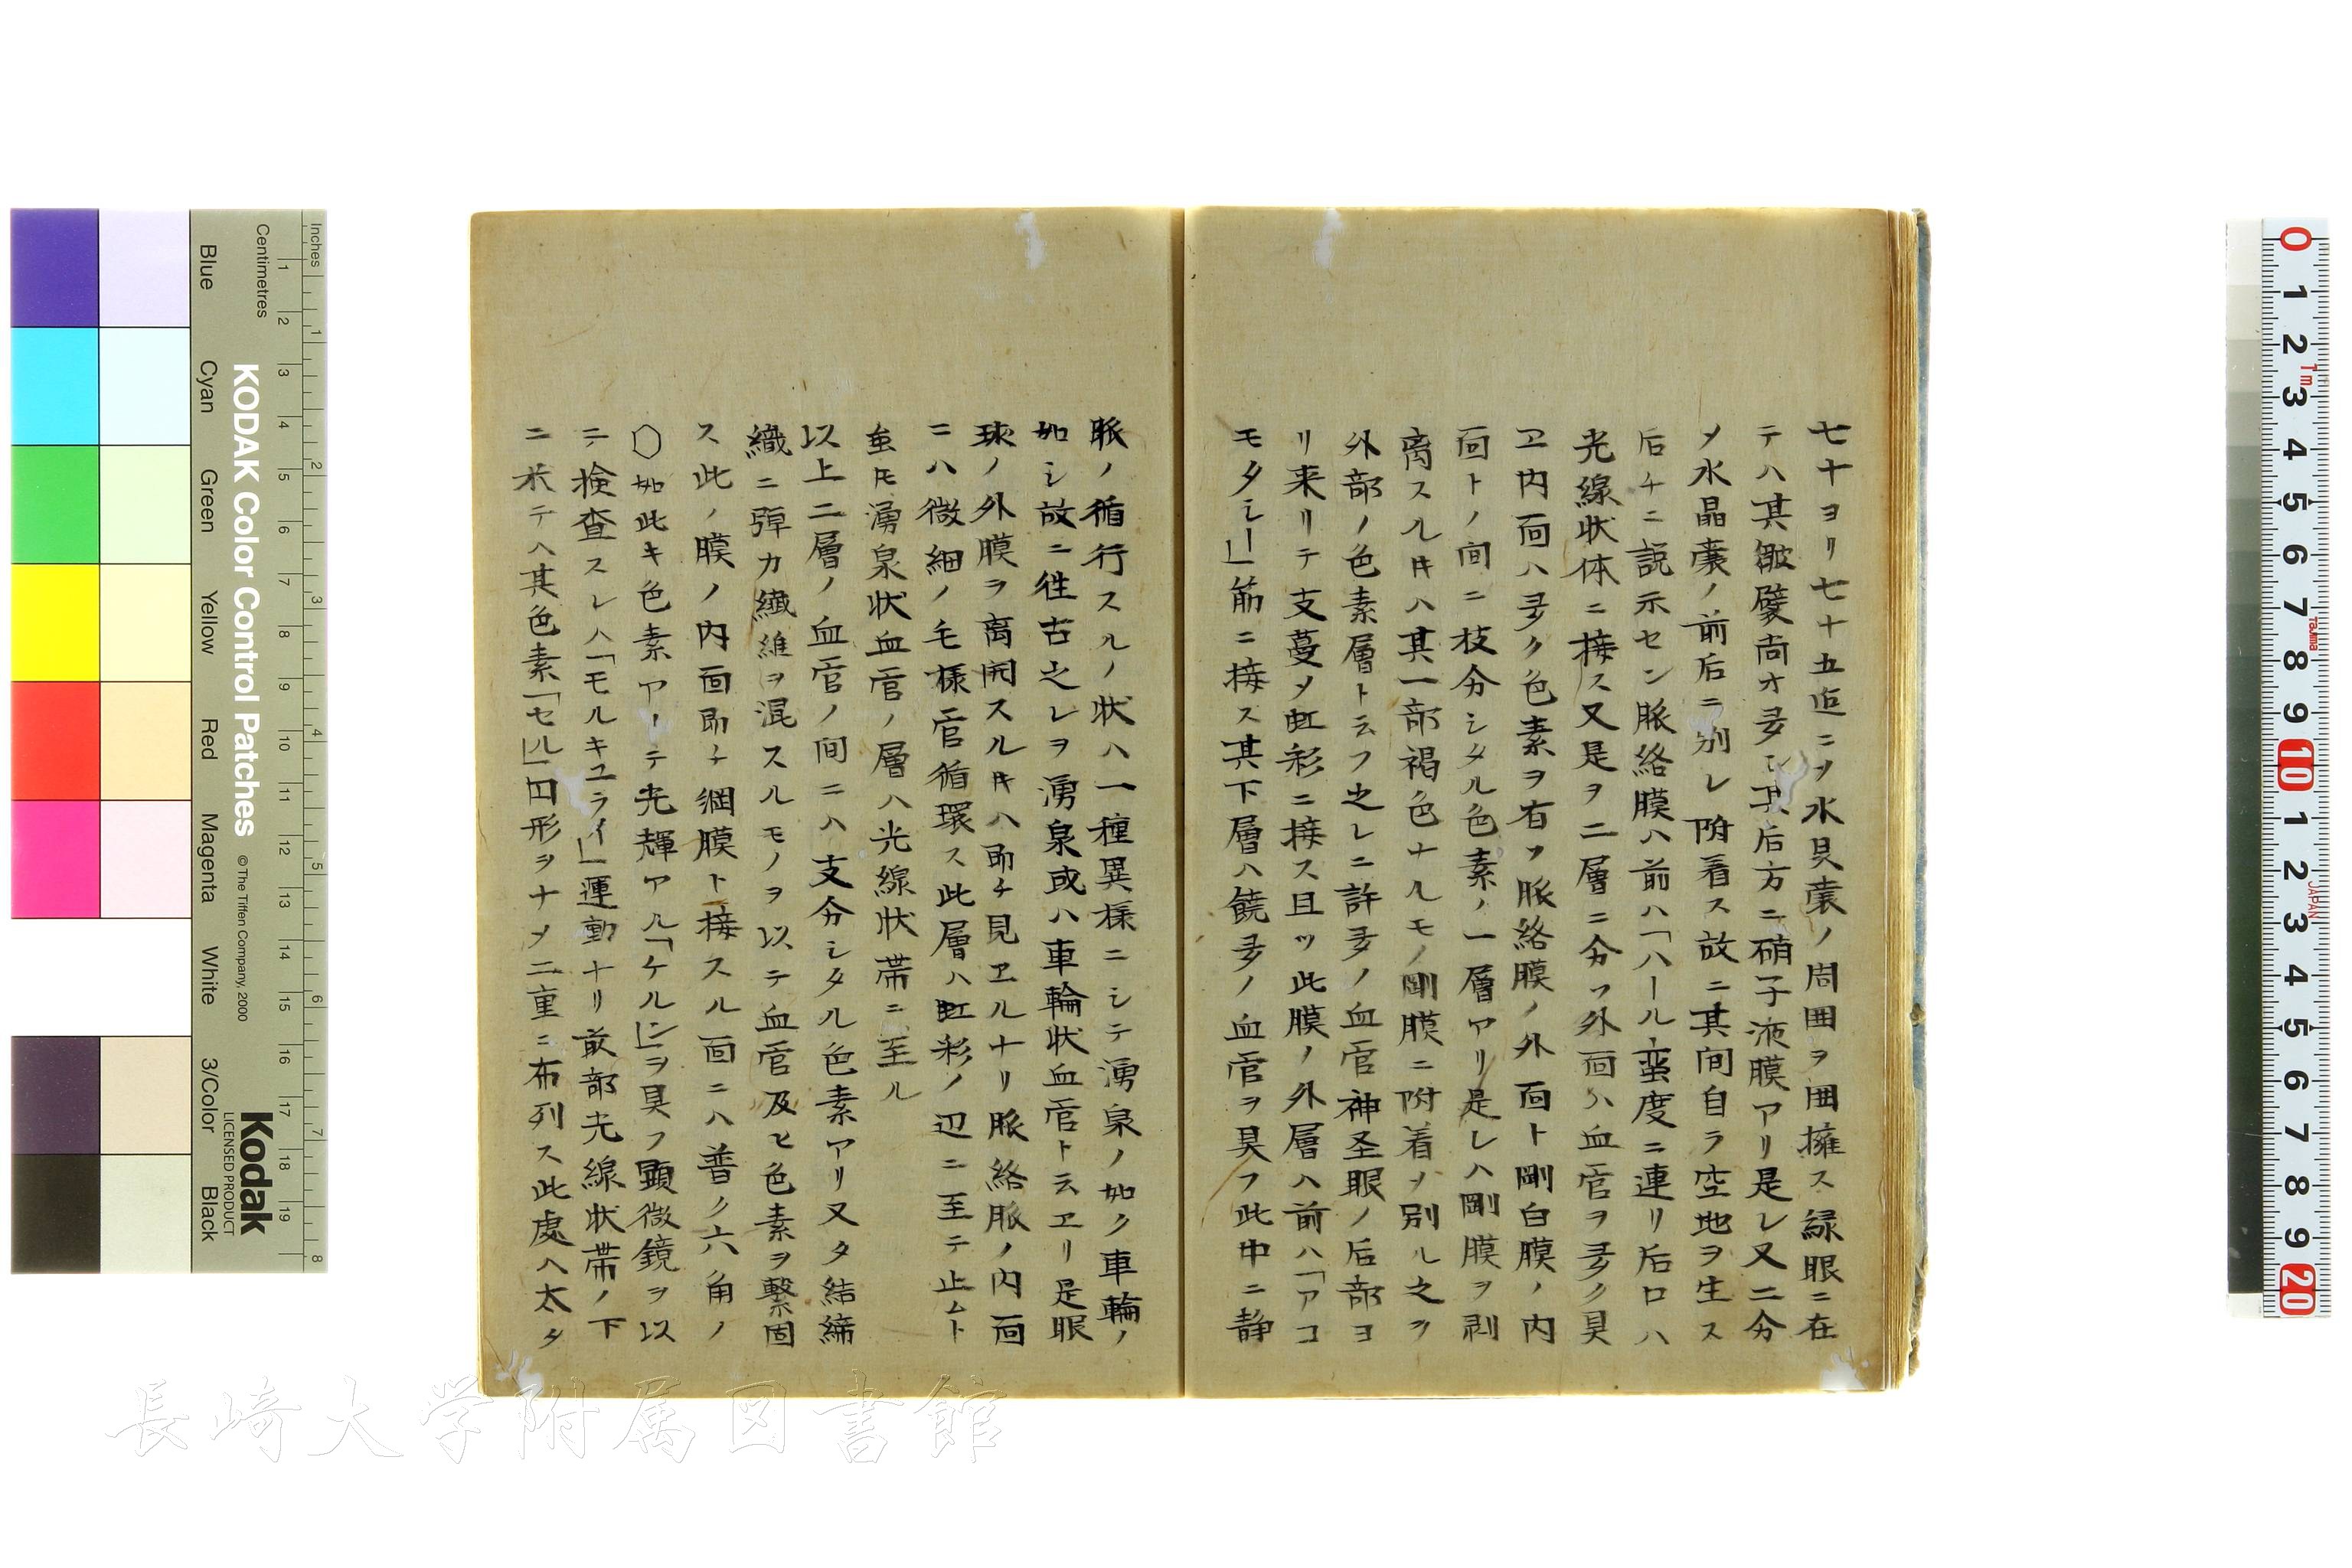 七十ヨリ七十五迠ニソ水具嚢ノ周囲ヲ囲擁ス緑眼ニ在
テハ其皺襞尚オ多シ其后方ニ硝子液膜アリ是レ又二分
メ水晶嚢ノ前后ニ別レ附着ス故ニ其間自ラ空地ヲ生ス
后チニ説示セン脈絡膜ハ前ハ「ハール蛮度ニ連リ后口ハ
光線状体ニ接ス又是ヲ二層ニ分ツ外面ハ血管ヲ多ク具
ヱ内面ハ多ク色素ヲ有ツ脈絡膜ノ外面ト剛白膜ノ内
面トノ間ニ枝分シタル色素ノ一層アリ是レハ剛膜ヲ剥
离スル𪜈ハ其一部褐色ナルモノ剛膜ニ附着メ別ル之ヲ
外部ノ色素層ト云フ之レニ許多ノ血管神圣眼ノ后部ヨ
リ来リテ支蔓メ虹彩ニ接ス且ツ此膜ノ外層ハ前ハ「アコ
モタシー」筋ニ接ス其下層ハ饒多ノ血管ヲ具フ此中ニ静
脈ノ循行スルノ状ハ一種異様ニシテ湧泉ノ如ク車輪ノ
如シ故ニ徃古之レヲ湧泉或ハ車輪状血管ト云ヱリ是眼
球ノ外膜ヲ离開スル𪜈ハ即チ見ヱルナリ脈絡脈ノ内面
ニハ微細ノ毛様管循環ス此層ハ虹彩ノ辺ニ至テ止ムト
虽𪜈湧泉状血管ノ層ハ光線状帯ニ至ル
以上二層ノ血管ノ間ニハ支分シタル色素アリ又タ結締
織ニ弾力繊維ヲ混スルモノヲ以テ血管及ヒ色素ヲ繋固
ス此ノ膜ノ内面即チ網膜ト接スル面ニハ普ク六角ノ
〇如此キ色素アーテ光輝アル「ケルン」ヲ具フ顕微鏡ヲ以
テ検査スレハ「モルキユライ」運動ナリ前部光線状帯ノ下
ニ米テハ其色素「セル」四形ヲナメ二重ニ布列ス此處ヘ太タ
Inches
Centimetres
KODAK Color Control Patches
© The Tiffen Company, 2000
Kodak
LICENSED PRODUCT
Blue Cyan Green Yellow Red Magenta White 3/Color Black
長崎大学附属図書館